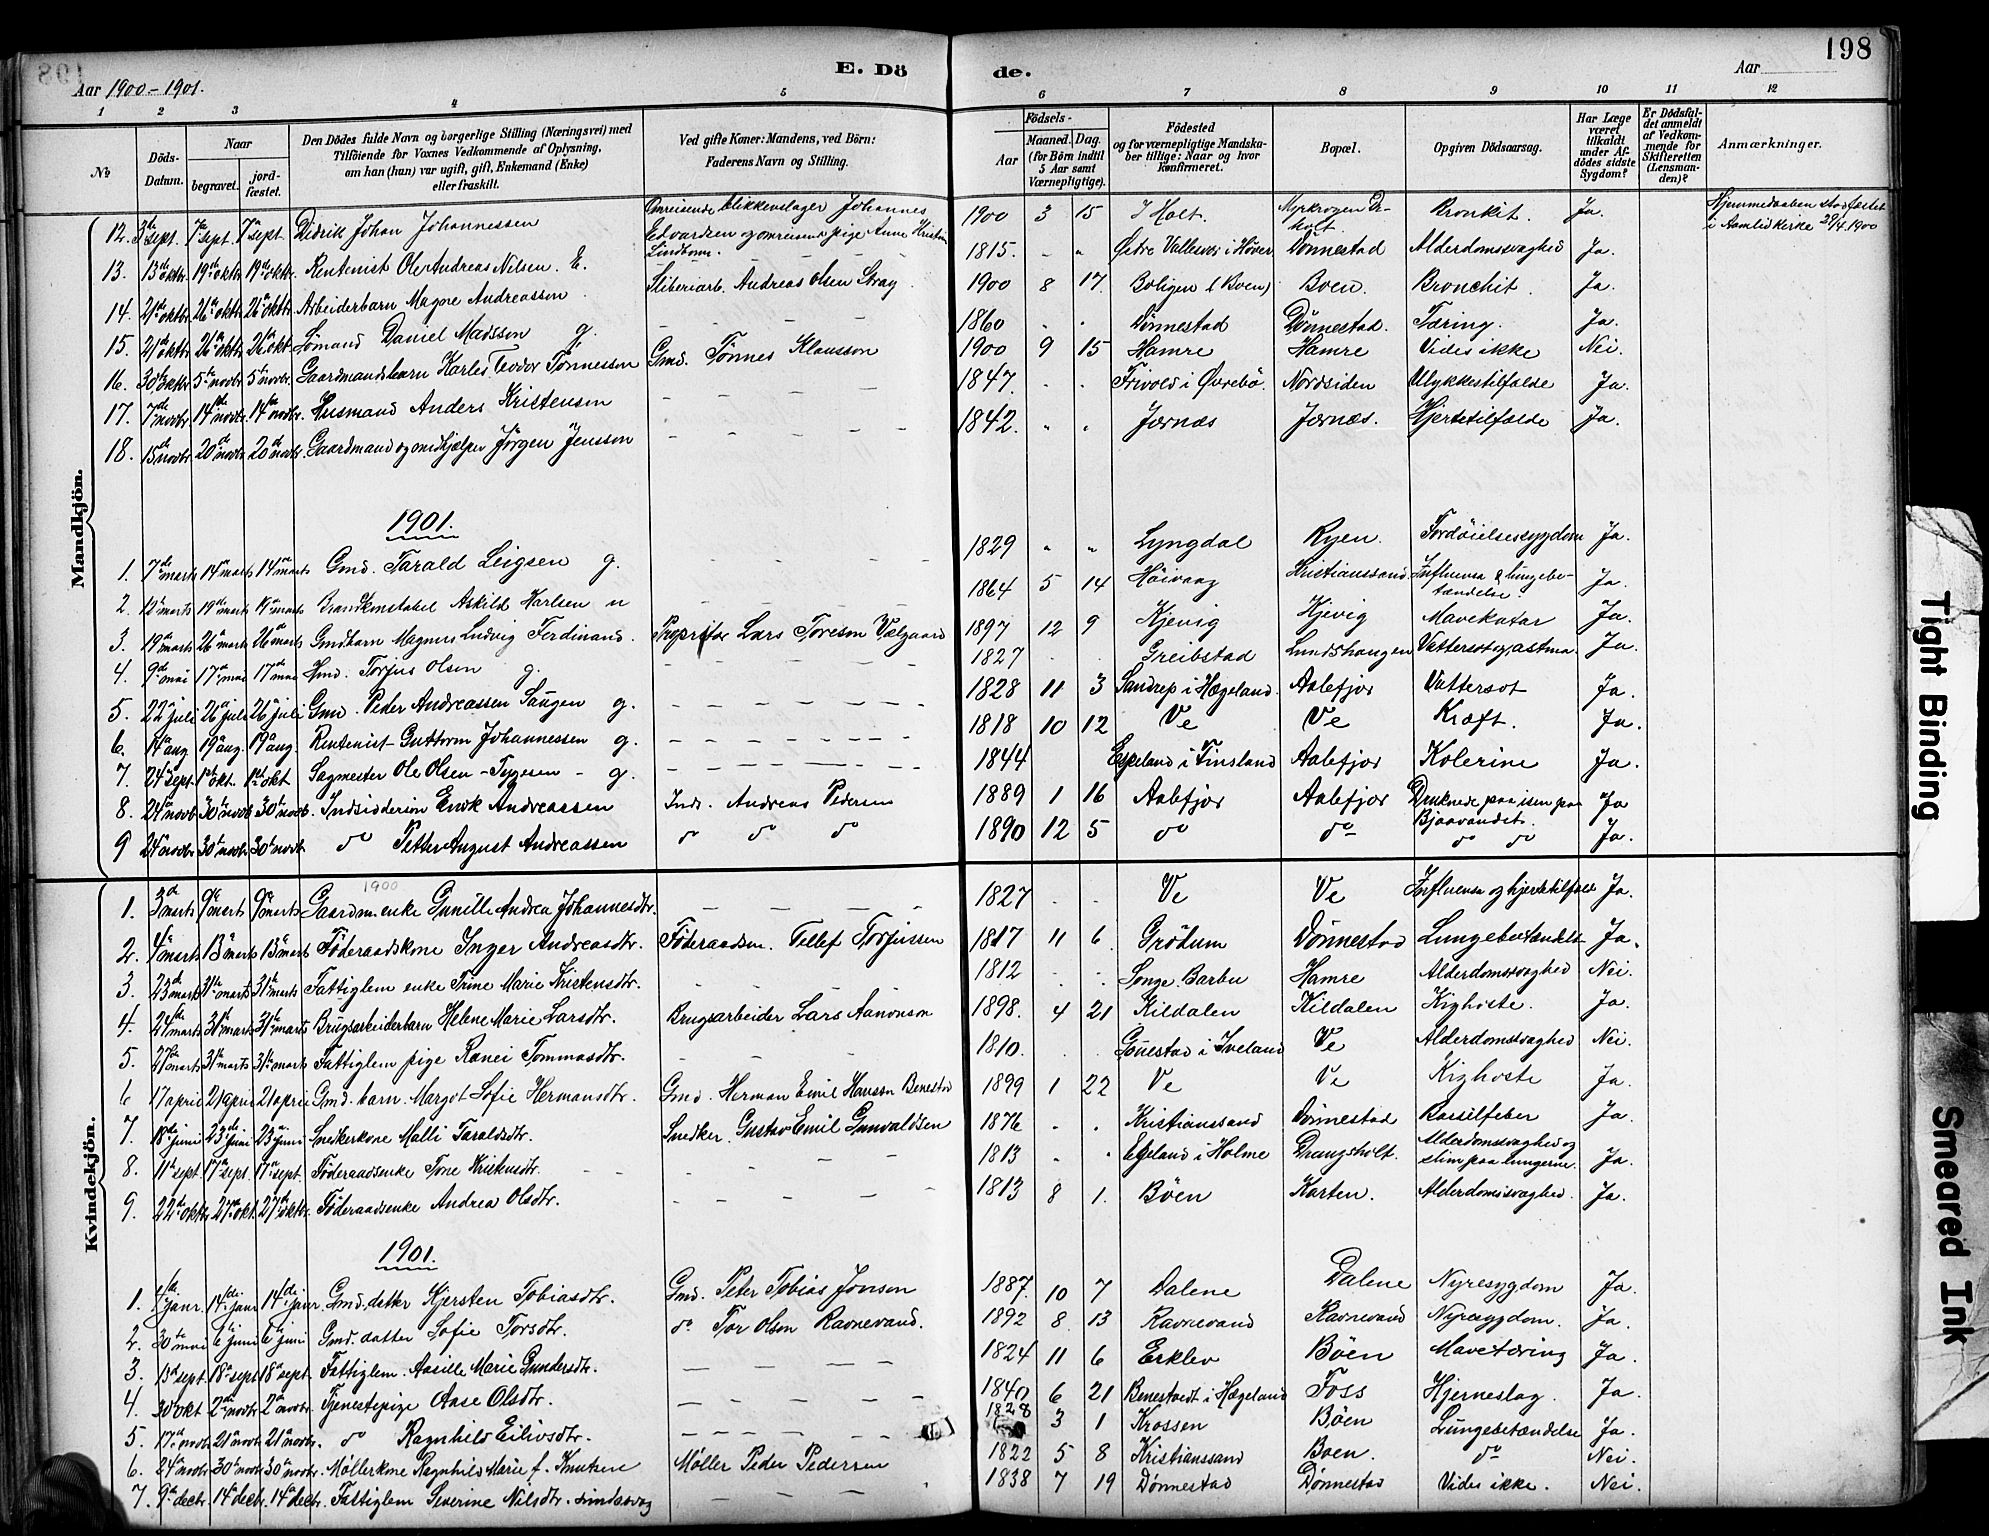 198
Aar 1900-1901.
E. Dö
de.
Aar
198
1 2 3 4 5 6 7 8 9 10 11 12
No
Döds-Datum.
Naar
begravet.
jordfæstet.
Den Dödes fulde Navn og borgerlige Stilling (Næringsvei) med
Tilföiende for Voxnes Vedkommende af Oplysning,
om han (hun) var ugift, gift, Enkemand (Enke)
eller fraskilt.
Ved gifte Koner: Mandens, ved Börn:
Faderens Navn og Stilling.
Födsels-
Aar
Maaned. Dag.
(for Börn indtil
5 Aar samt
Værnepligtige).
Födested
og for værnepligtige Mandskaber tillige: Naar og hvor
konfirmeret.
Bopæl.
Opgiven Dödsaarsag.
Har Læge
været
tilkaldt
under Afdödes sidste
Sygdom?
Er Dödsfaldet anmeldt
af Vedkommende for
Skifteretten
(Lensmanden)?
Anmærkninger.
Mandkjön.
12. 3die sept. 7de sept. 7de sept. Didrik Johan Johannessen Omreisende blikkenslager Johannes Edvardsen og omreisende pige Anne Kristine Lindbom. 1900 3 15 I Holt. Bronkit. Ja. Hjemmedaaben stadfæstet i Aamlid kirke 29/4 1900
13. 13de oktbr. 19de oktbr 19de oktbr Rentenist Ole Andreas Nilsen. E. 1815. Østre Vallesvær i Høver Dønnestad Alderdomssvaghed Ja.
14. 21de oktbr. 26de oktbr 26de oktbr Arbeiderbarn Magne Andreassen Sliberiarb. Andreas Olsen Stray 1900 8 17 Boligen (Boen) Boen. Bronchit. Ja.
15. 21de oktbr 26de oktbr 26de okt. Sømand Daniel Madsson g. 1860 Dønnestad Dønnestad. Tæring. Ja.
16. 30te oktbr 5te novbr 5te novbr. Gaardmandsbarn Karles Teodor Tønnesson Gmd. Tønnes Klausson 1900 9 15 Hamre Hamre Vides ikke Nei.
17. 7de novbr 14de novbr. 14de novbr. Husmand Anders Kristensen 1847. Frivold i Øvrebø Nordsiden Ulykkestilfælde Ja.
18. 15de novbr 20de novbr. 20de novbr. Gaardmand og medhjælper Jørgen Jensson 1842. Jærnæs Jærnæs. Hjertetilfælde Ja.
1901.
1. 7de marts 14de marts 14de marts Gmd. Tarald Leigsen g. 1829 Lyngdal Ryen. Fordøielsessygdom Ja.
2. 12te marts 19de marts 19de marts Brandkonstabel Askild Karlsen u 1864 5 14 Høivaag Kristianssand Influensa & lungebetændelse. Ja.
3. 19de marts 26de marts 26de marts Gmdbarn Magnus Ludvig Ferdinand. Proprietær Lars Toreson Vælgaard 1897 12 9 Kjevig Kjevig Mavekatar Ja.
4. 9de mai 17de mai 17de mai Hmd. Torjus Olsen g. 1827 Greibstad Lundshaugen Vattersot og astma. Ja.
5. 22de juli 26de juli 26de juli Gmd. Peder Andreassen Saugen g. 1828 11 3 Sandrep i Hægeland. Aalefjær Vattersot Ja.
6. 14de aug. 19de aug. 19de aug. Rentenist Guttorm Johannessen g. 1818 10 12 Ve Ve Kræft. Ja.
7. 24de sept. 1ste okt. 1ste okt Sagmester Ole Olsen-Tygesen - g. 1844 Espeland i Finsland Aalefjær Kolerine Ja.
8. 24de novb 30te novb 30te novb. Indsidderson Enok Andreassen Inds. Andreas Pedersen 1889 1 16 Aalefjær Aalefjær Druknede paa isen paa Bjaavandet. Ja
9 24de novbr 30te novbr 30te novbr do Petter August Andreassen do do do 1890 12 5 do do do do Ja.
Kvindekjön.
1900
1. 3die marts 9de marts 9de marts Gaardm.enke Gunille Andrea Johannesdtr. 1827 Ve Ve Influensa og hjertetilfælde Ja.
2. 4de marts 13de marts 13de marts Føderaadskone Inger Andreasdtr. Føderaadsm. Tellef Torjussen 1817 11 6 Grødum Dønnestad Lungebetændelse Ja.
3. 23de marts 31te marts 31te marts Fattiglem enke Trine Marie Kristensdtr. 1812 Songe. Barbu Hamre Alderdomssvaghed Nei.
4. 24de marts 31te marts 31te marts Brugsarbeiderbarn Helene Marie Larsdtr. Brugsarbeider Lars Aanonson 1898. 4 21 Kildalen Kildalen Kighoste. Ja.
5. 27de marts 31te marts 31te marts Fattiglem pige Ranei Tommasdtr. 1810. i Iveland Ve Alderdomssvaghed Nei.
6 17 april 21 april 21 april Gmd. barn. Margot Sofie Hermansdtr. Gmd. Herman Emil Hansson Benestad 1899 1 22 Ve Ve Kighoste Ja.
7. 18de juni 23de juni 23 juni Snedkerkone Malli Taraldsdtr. Snedker Gustav Emil Gunvaldsen 1876 Kristianssand Dønnestad Barselfeber Ja.
8. 11te sept. 17de sept. 17de sept. Føderaadsenke Tone Kristensdtr. 1813 Egeland i Holme Drangsholt. Alderdomssvaghed og slim paa lungerne. Ja.
9. 22de oktbr 27de okt. 27de oktbr. Føderaadsenke Andrea Olsdtr. 1813 8 1. Bøen Karten. Alderdomssvaghed. Ja.
1901.
1. janr. 14de janr 14de janr. Gmd. datter Kjersten Tobiasdtr. Gmd. Peter Tobias Jonson 1887. 10 7 Dalene Dalene Nyresygdom Ja.
2. 30te mai 6te juni 6te juni Gmd. datter Sofie Torsdtr. do Tor Olson Ravnevand. 1892 8 13 Ravnevand Ravnevand Nyresygdom. Ja.
3. 13de sept. 18de sept 18de sept. Fattiglem. Aasille Marie Gundersdtr. 1824 11 6 Erklev Bøen Mavetæring Ja.
4. 30te okt 2den novbr 2den novbr. Tjenestepige Aase Olsdtr. 1840 6 21 Benestvedt i Hægeland Foss Hjerneslag. Ja.
5. 17de novbr 21de novbr 21de novbr. do Ragnhild Eilivsdtr. 1828 3 1 Krossen Bøen Lungebetændelse Ja.
6. 24de novbr 30te novbr 30te novbr. Møllerkone Ragnhild Marie f. Knutsen Møller Peder Pedersen 1822 5 8 Kristianssand Boen. do Nei.
7. 9de decbr 14de decbr. 14de decbr. Fattiglem Severine Nilsdtr. sindssvag 1838 7 19 Dønnestad Dønnestad Vides ikke. Nei.
Tight Binding
Smeared Ink